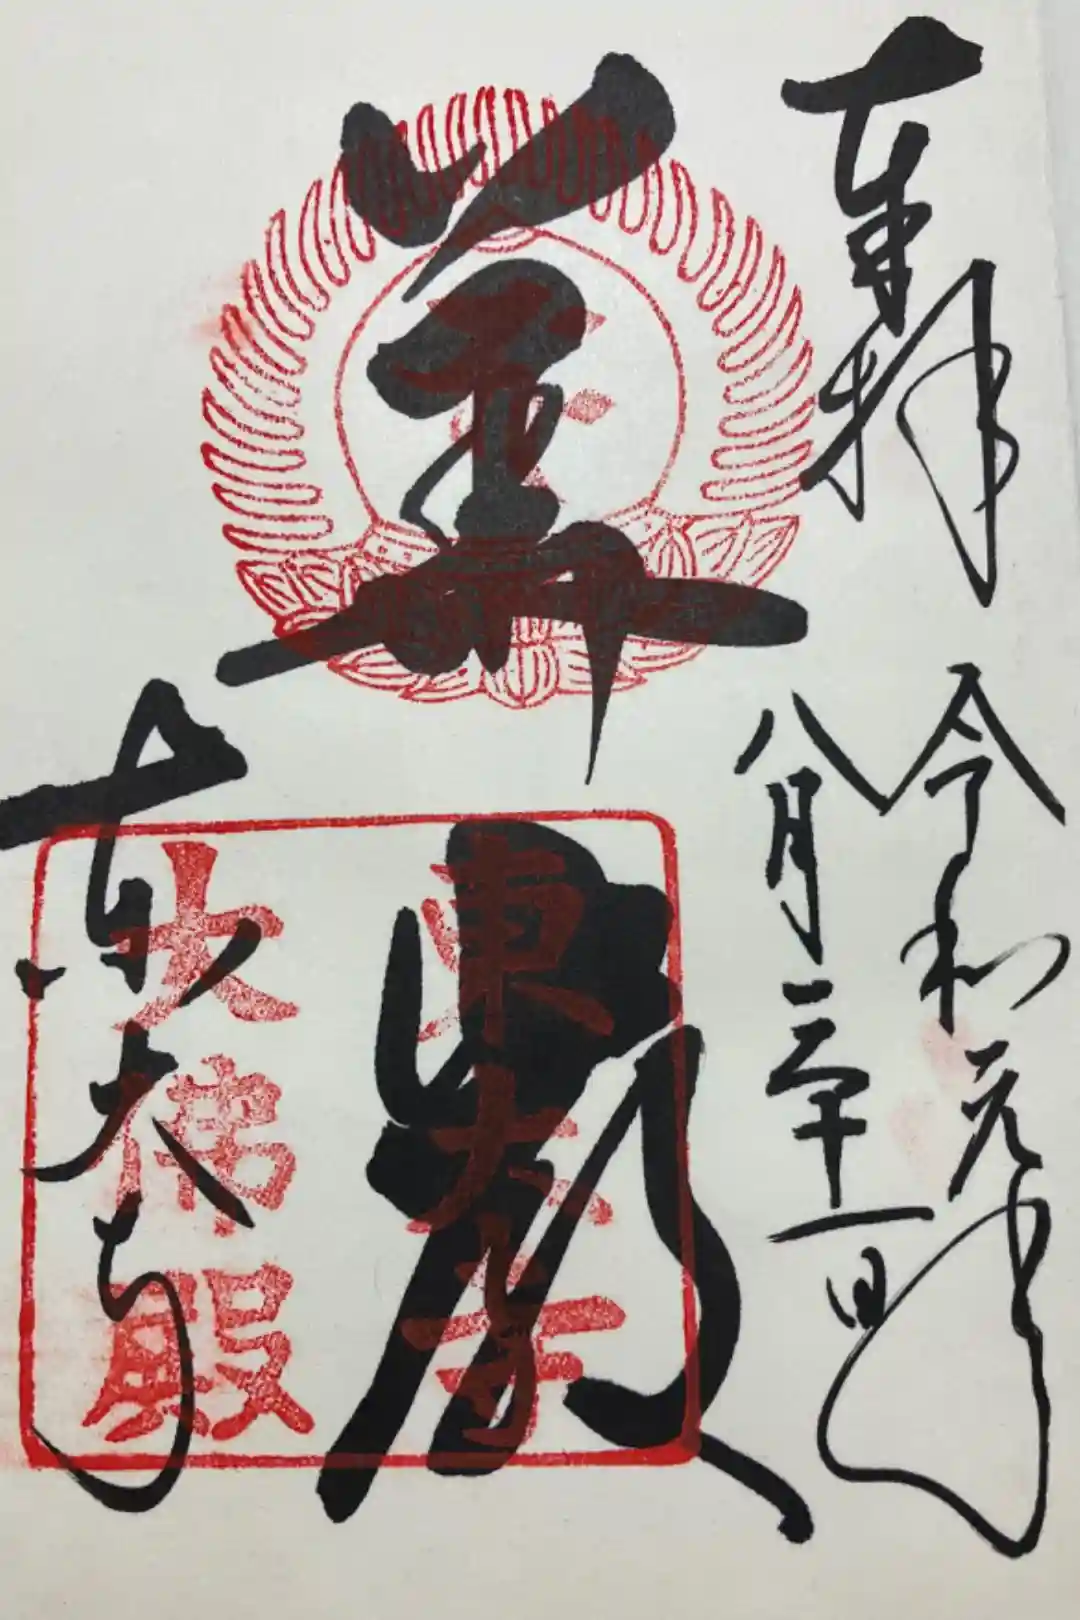 奉拝
令和元年
八月三十一日
華厳
東大寺
東大寺
大佛殿